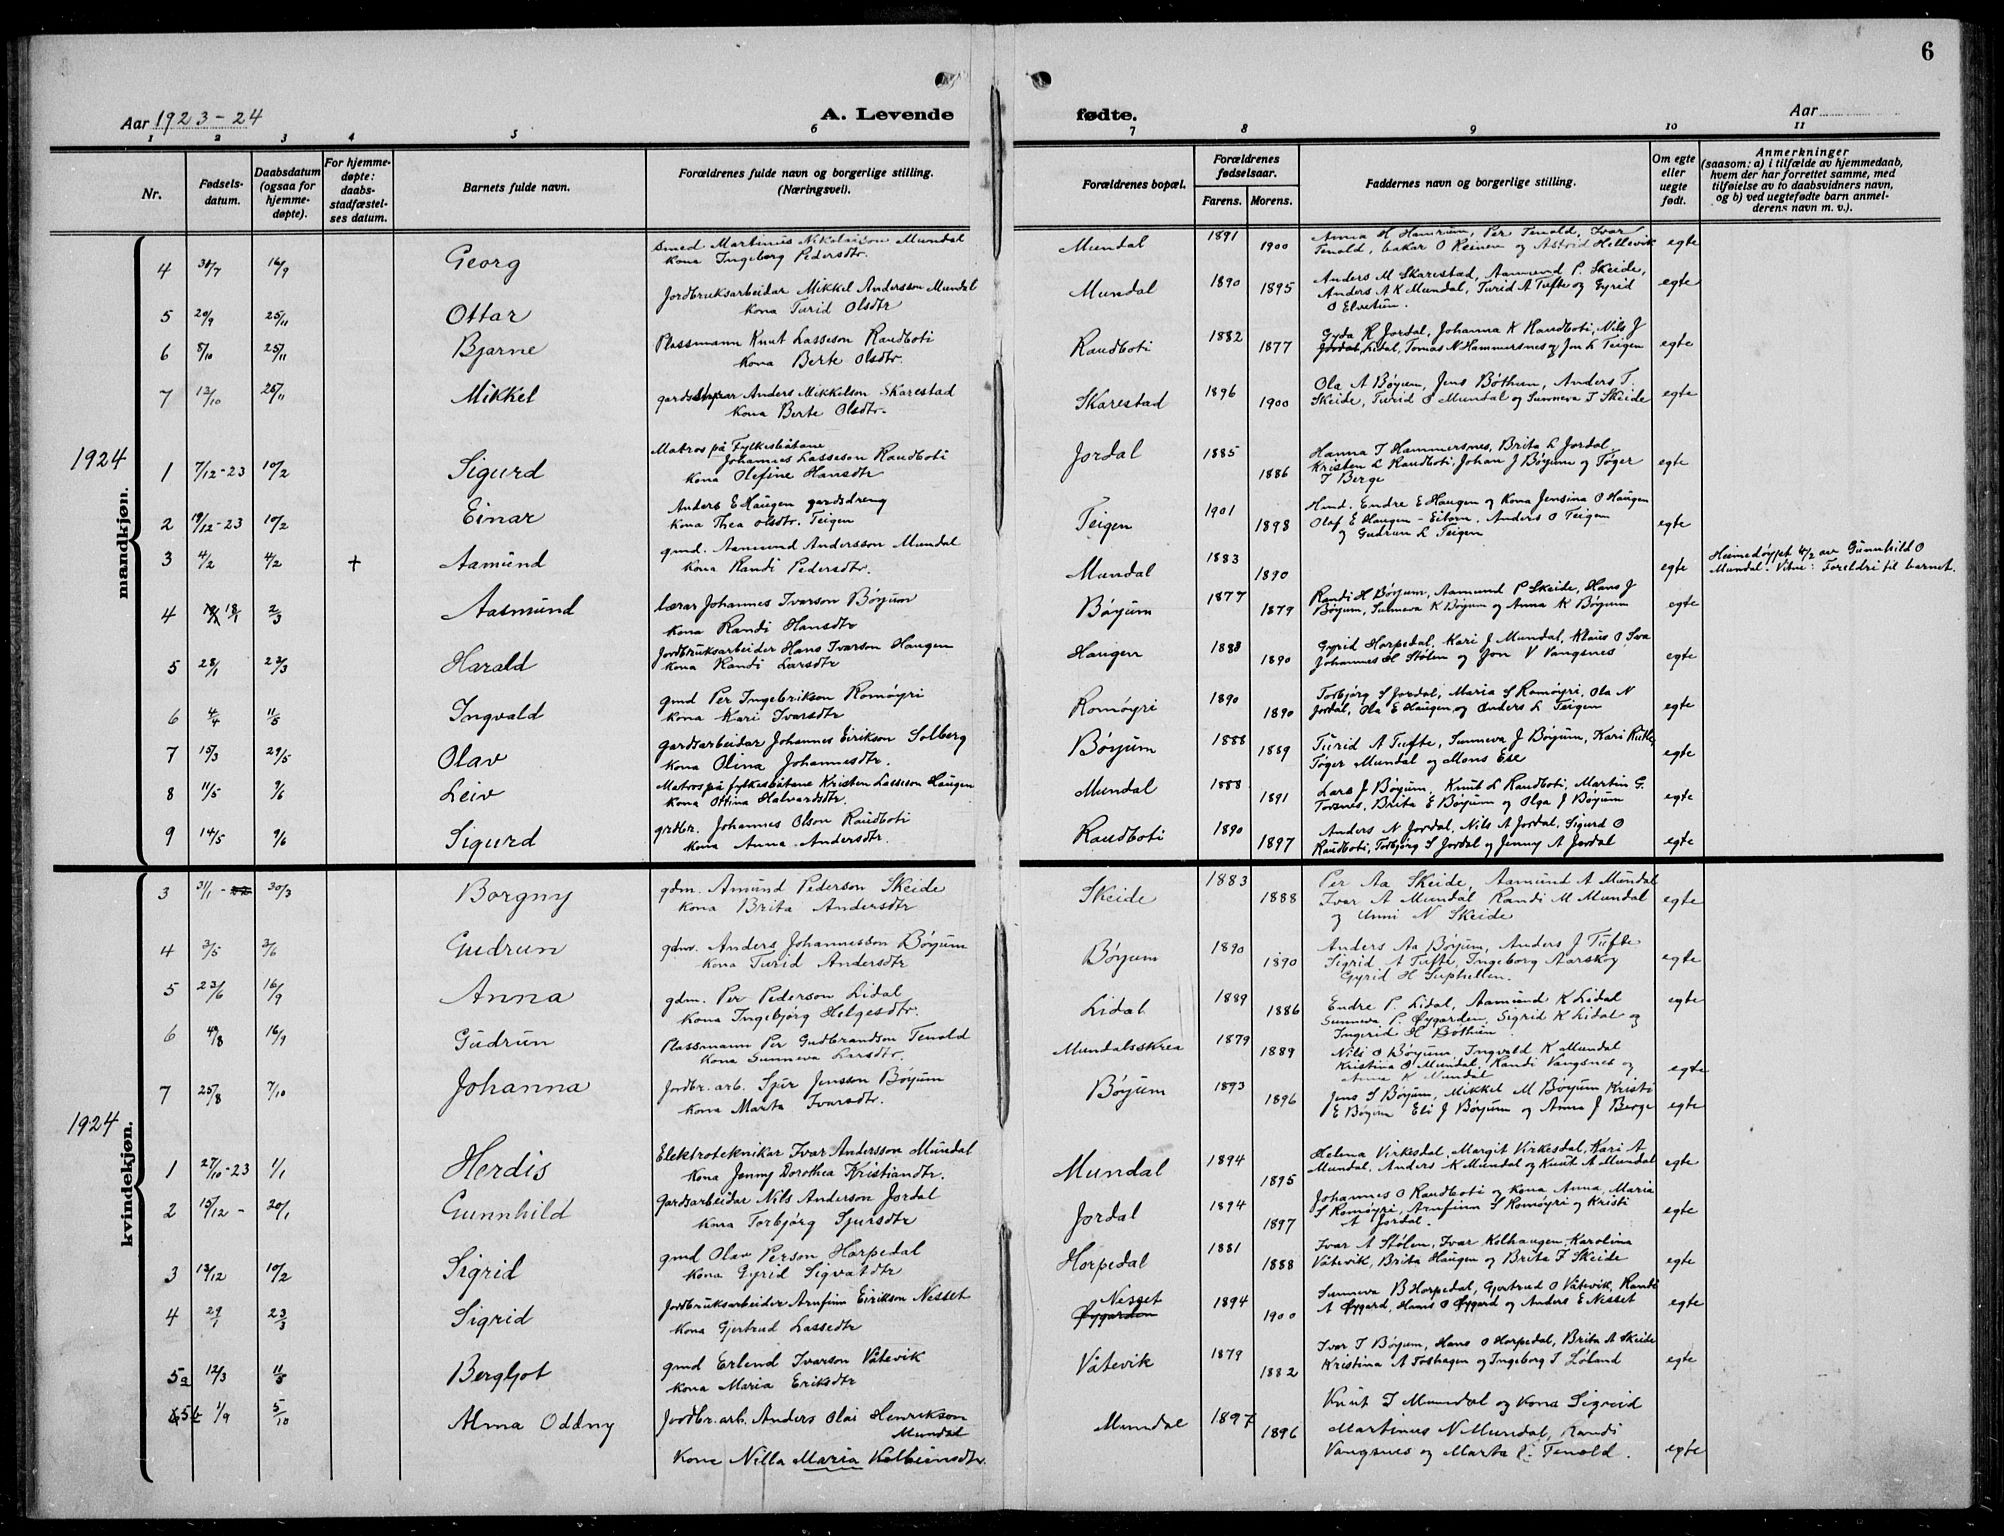 6
Aar 1923-24
A. Levende
fødte.
Aar
1 2 3 4 5 6 7 8 9 10 11
Nr.
Fødsels-
datum.
Daabsdatum
(ogsaa for
hjemme-
døpte).
For hjemme-
døpte:
daabs-
stadfæstel-
ses datum.
Barnets fulde navn.
Forældrenes fulde navn og borgerlige stilling.
(Næringsvei).
Forældrenes bopæl.
Forældrenes
fødselsaar.
Farens. Morens.
Faddernes navn og borgerlige stilling.
Om egte
eller
uegte
født.
Anmerkninger
(saasom: a) i tilfælde av hjemmedaab,
hvem der har forrettet samme, med
tilføielse av to daabsvidners navn,
og b) ved uegtefødte barn anmel-
derens navn m. v.).
mandkjøn.
4 30/7 16/9 Georg
Smed Martinus Nikolaison Mundal
kona Ingeborg Pedersdtr.
Mundal 1891 1900
Anna H Hamrum, Per Tenold, Ivar
Tenold, bakar O Reinen og Astrid Hellevik egte
5 20/9 25/11 Ottar
Jordbruksarbeidar Mikkel Andersson Mundal
kona Turid Olsdtr
Mundal 1890 1895
Anders M Skarestad, Aamund P. Skeide,
Anders A K Mundal, Turid A Tufte og Gyrid
O Elvetun. egte
6 5/10 25/11 Bjarne
Plassmann Knut Lasseson Raudboti
kona Berte Olsdtr.
Raudboti 1882 1877
Gyda H Jordal, Johanna K Raudboti, Nils J
Jordal, Lidal, Tomas N Hammersnes og Jon L Teigen egte
7 13/10 25/11 Mikkel
Anders Mikkelson Skarestad
kona Berte Olsdtr.
Skarestad 1896 1900
Ola A Bøyum, Jens Bøthun, Anders T.
Skeide, Turid O Mundal og Sunneva I Skeide egte
1924
1 7/12-23 10/2 Sigurd
Matros på Fylkesbåtane
Johannes Lasseson Raudboti
kona Olefine Hansdtr
Jordal 1885 1886
Hanna T Hammersnes, Brita L Jordal,
Kristen L Raudboti, Johan J Bøyum og Tøger
T Berge egte
2 19/12-23 10/2 Einar
Anders E Haugen gardsdreng
kona Thea Olsdtr. Teigen
Teigen 1901 1898
Hmd. Endre E Haugen og kona Jensina O Haugen
Olaf E Haugen - Eitorn, Anders O Teigen
og Gudrun L Teigen egte
3 4/2 4/2 + Aamund
gmd. Aamund Andersson Mundal
kona Randi Pedersdtr.
Mundal 1883 1890
egte
Heimedøypt 4/2 av Gunnhild O
Mundal. Vitne: Foreldri til barnet.
4 18/1 2/3 Aasmund
lærar Johannes Ivarson Bøyum
kona Randi Hansdtr
Bøyum 1877 1879
Randi H Bøyum, Aamund P Skeide, Hans J
Bøyum, Sunneva K Bøyum og Anna K Bøyum egte
5 28/1 23/3 Harald
Jordbruksarbeider Hans Ivarson Haugen
kona Randi Larsdtr
Haugen 1888 1890
Gyrid Horpedal, Kari J Mundal, Klaus O Sva
Johannes H Stølen og Jon V Vangsnes egte
6 4/4 11/5 Ingvald
gmd Per Ingebrikson Romøyri
kona Kari Ivarsdtr
Romøyri 1890 1890
Torbjørg S Jordal, Maria S Romøyri, Ola N
Jordal, Ola E Haugen, og Anders L Teigen egte
7 15/3 29/5 Olav
Gardsarbeidar Johannes Eirikson Solberg
kona Olina Johannesdtr.
Bøyum 1888 1889
Turid A Tufte, Sunneva J Bøyum, Kari Rutle
Tøger Mundal og Mons Ese egte
8 11/5 9/6 Leiv
Matros på fylkesbåtane Kristen Lasseson Haugen
kona Ottina Halvardsdtr.
Mundal 1888 1891
Lars J Bøyum, Knut L Raudboti, Martin G.
Torsnes, Brita E Bøyum og Olga J Bøyum egte
9 14/5 9/6 Sigurd
grdbr. Johannes Olson Raudboti
kona Anna Andersdtr.
Raudboti 1890 1897
Anders N Jordal, Nils A Jordal, Sigurd O
Raudboti, Torbjørg S Jordal og Jenny A Jordal egte
kvindekjøn.
3 31/1 30/3 Borgny
gdm. Amund Pederson Skeide
kona Brita Andersdtr
Skeide 1883 1888
Per Aa Skeide, Aamund A Mundal
Ivar A Mundal Randi M Mundal
og Anni N Skeide egte
4 3/5 3/6 Gudrun
gdm. Anders Johannesson Bøyum
kona Turid Andersdtr
Bøyum 1890 1890
Anders Aa Bøyum, Anders J Tufte
Sigrid A Tufte, Ingeborg Aarskog
Gyrid H Suphellen. egte
5 23/6 16/9 Anna
gdm. Per Pederson Lidal
kona Ingebjørg Helgesdtr.
Lidal 1889 1886
Endre P. Lidal, Aamund K Lidal
Sunneva P. Øygarden, Sigrid K Lidal og
Ingerid H Bøthun. egte
6 4/8 16/9 Gudrun
Plassmann Per Gudbrandson Tenold
kona Sunneva Larsdtr.
Mundalsskrea 1879 1889
Nils O Bøyum, Ingvald K Mundal
Kristina O Mundal, Randi Vangsnes og
Anna K Mundal egte
7 25/8 7/10 Johanna
Jordbr. arb. Sjur Jensson Bøyum
kona Marta Ivarsdtr.
Bøyum 1893 1896
Jens S Bøyum, Mikkel M Bøyum Kristi
E Bøyum Eli J Bøyum og Anna J Berge egte
1924
1 27/10-23 1/1 Herdis
Elektroteknikar Ivar Andersson Mundal
kona Jenny Dorothea Kristiandtr.
Mundal 1894 1895
Helena Virkesdal, Margit Virkesdal, Kari A
Mundal, Anders K Mundal og Knut A Mundal egte
2 15/12 - 20/1 Gunnhild
Gardsarbeidar Nils Anderson Jordal
kona Torbjørg Sjursdtr
Jordal 1894 1897
Johannes O Raudboti og kona Anna, Maria
S Romøyri, Arnfinn S Romøyri og Kristi
A Jordal. egte
3 13/12 10/2 Sigrid
gmd Olav Person Horpedal
kona Gyrid Sigvatdtr
Horpedal 1881 1888
Ivar A Stølen, Ivar Kolhaugen, Karolina
Våtevik, Brita Haugen og Brita I Skeide egte
4 29/1 23/3 Sigrid
Jordbruksarbeider Arnfinn Eirikson Nesset
kona Gjertrud Lassedtr
Nesset
Øygarden 1894 1900
Sunneva B Horpedal, Gjertrud O Våtevik, Randi
A Øygard, Hans O Øygard og Anders E Nesset egte
5a 12/3 11/5 Bergljot
gmd Erlend Ivarson Våtevik
kona Maria Eriksdtr
Våtevik 1879 1882
Ivar I Bøyum, Hans O Horpedal, Brita A Skeide
Kristina A Toshagen og Ingeborg I Løland egte
5b 1/9 5/10 Alma Oddny
Jordbr. arb. Anders Olai Henrikson
Mundal
kona Nilla Maria Kolbeinsdtr.
Mundal 1897 1896
Knut I Mundal og kona Sigrid
Martinus N Mundal, Randi
Vangsnes og Marta P. Tenold. egte